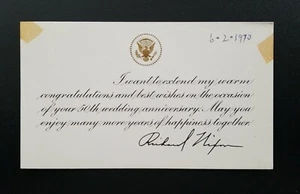 6-2-1970
I want to extend my warm
congratulations and best wishes on the occasion
of your 50th wedding anniversary. May you
enjoy many more years of happiness together.
Richard Nixon